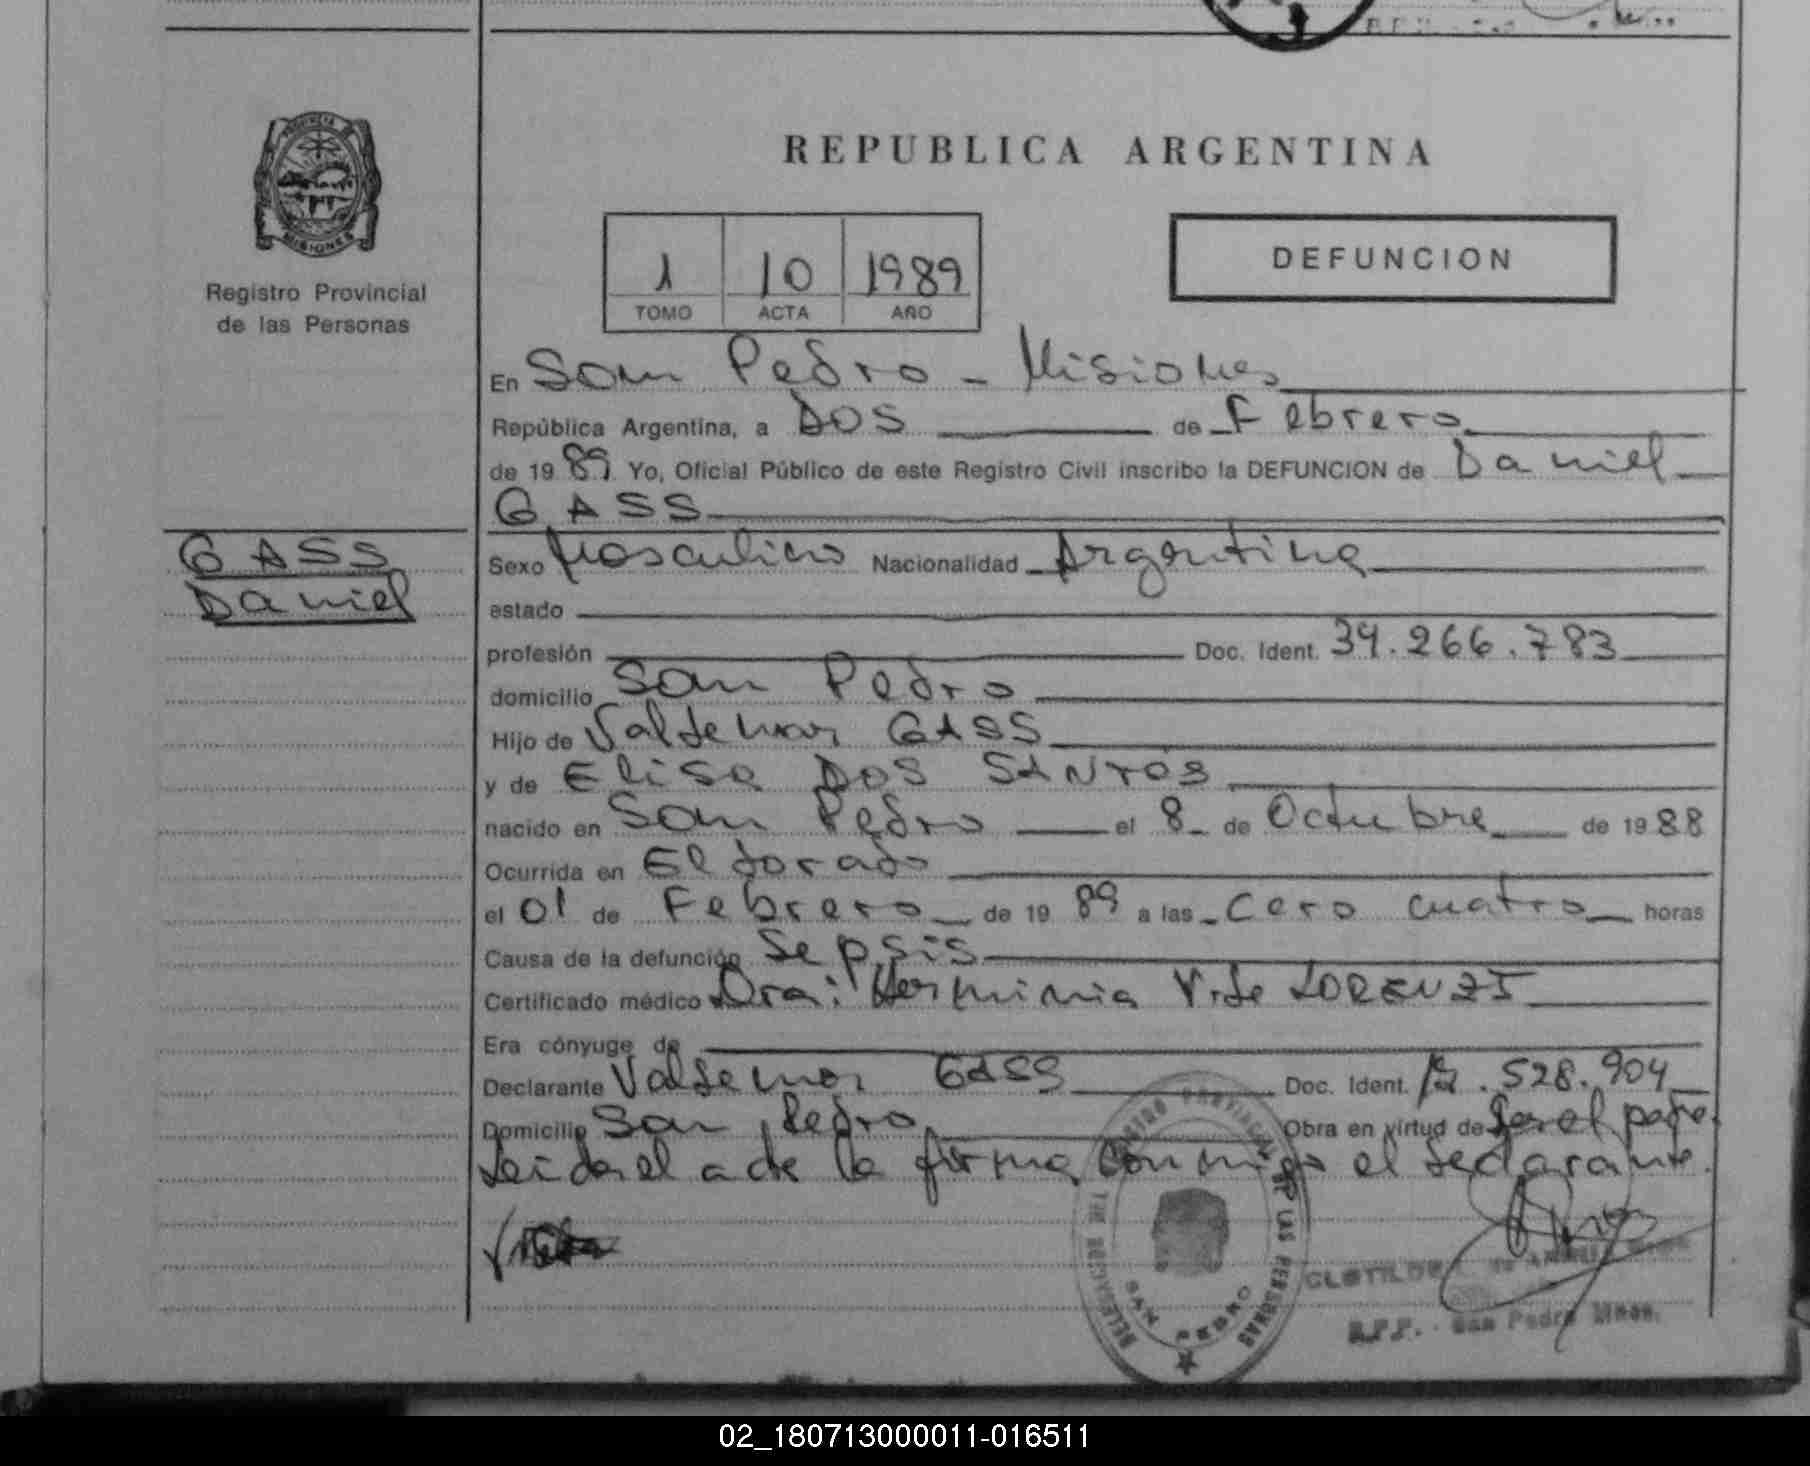 PROVINCIA DE
MISIONES
Registro Provincial
de las Personas
REPUBLICA ARGENTINA
1 10 1989
TOMO ACTA AÑO
DEFUNCION
En San Pedro - Misiones
República Argentina, a DOS de Febrero
de 1989 Yo, Oficial Público de este Registro Civil inscribo la DEFUNCION de Daniel
GASS
GASS
Daniel
Sexo Masculino Nacionalidad Argentina
estado
profesión Doc. Ident. 34.266.783
domicilio San Pedro
Hijo de Valdemar GASS
y de Elisa DOS SANTOS
nacido en San Pedro el 8 de Octubre de 1988
Ocurrida en Eldorado
el 01 de Febrero de 1989 a las Cero cuatro horas
Causa de la defunción Sepsis
Certificado médico Dra: Herminia V. de LORENZI
Era cónyuge de
Declarante Valdemar GASS Doc. Ident. .528.904
Domicilio San Pedro Obra en virtud de Ser el padre.
Leida el acta la firma conmigo el declarante.
REGISTRO PROVINCIAL DE LAS PERSONAS
SAN PEDRO
CLOTILDE
R.P.P. - San Pedro Mnes.
02_180713000011-016511